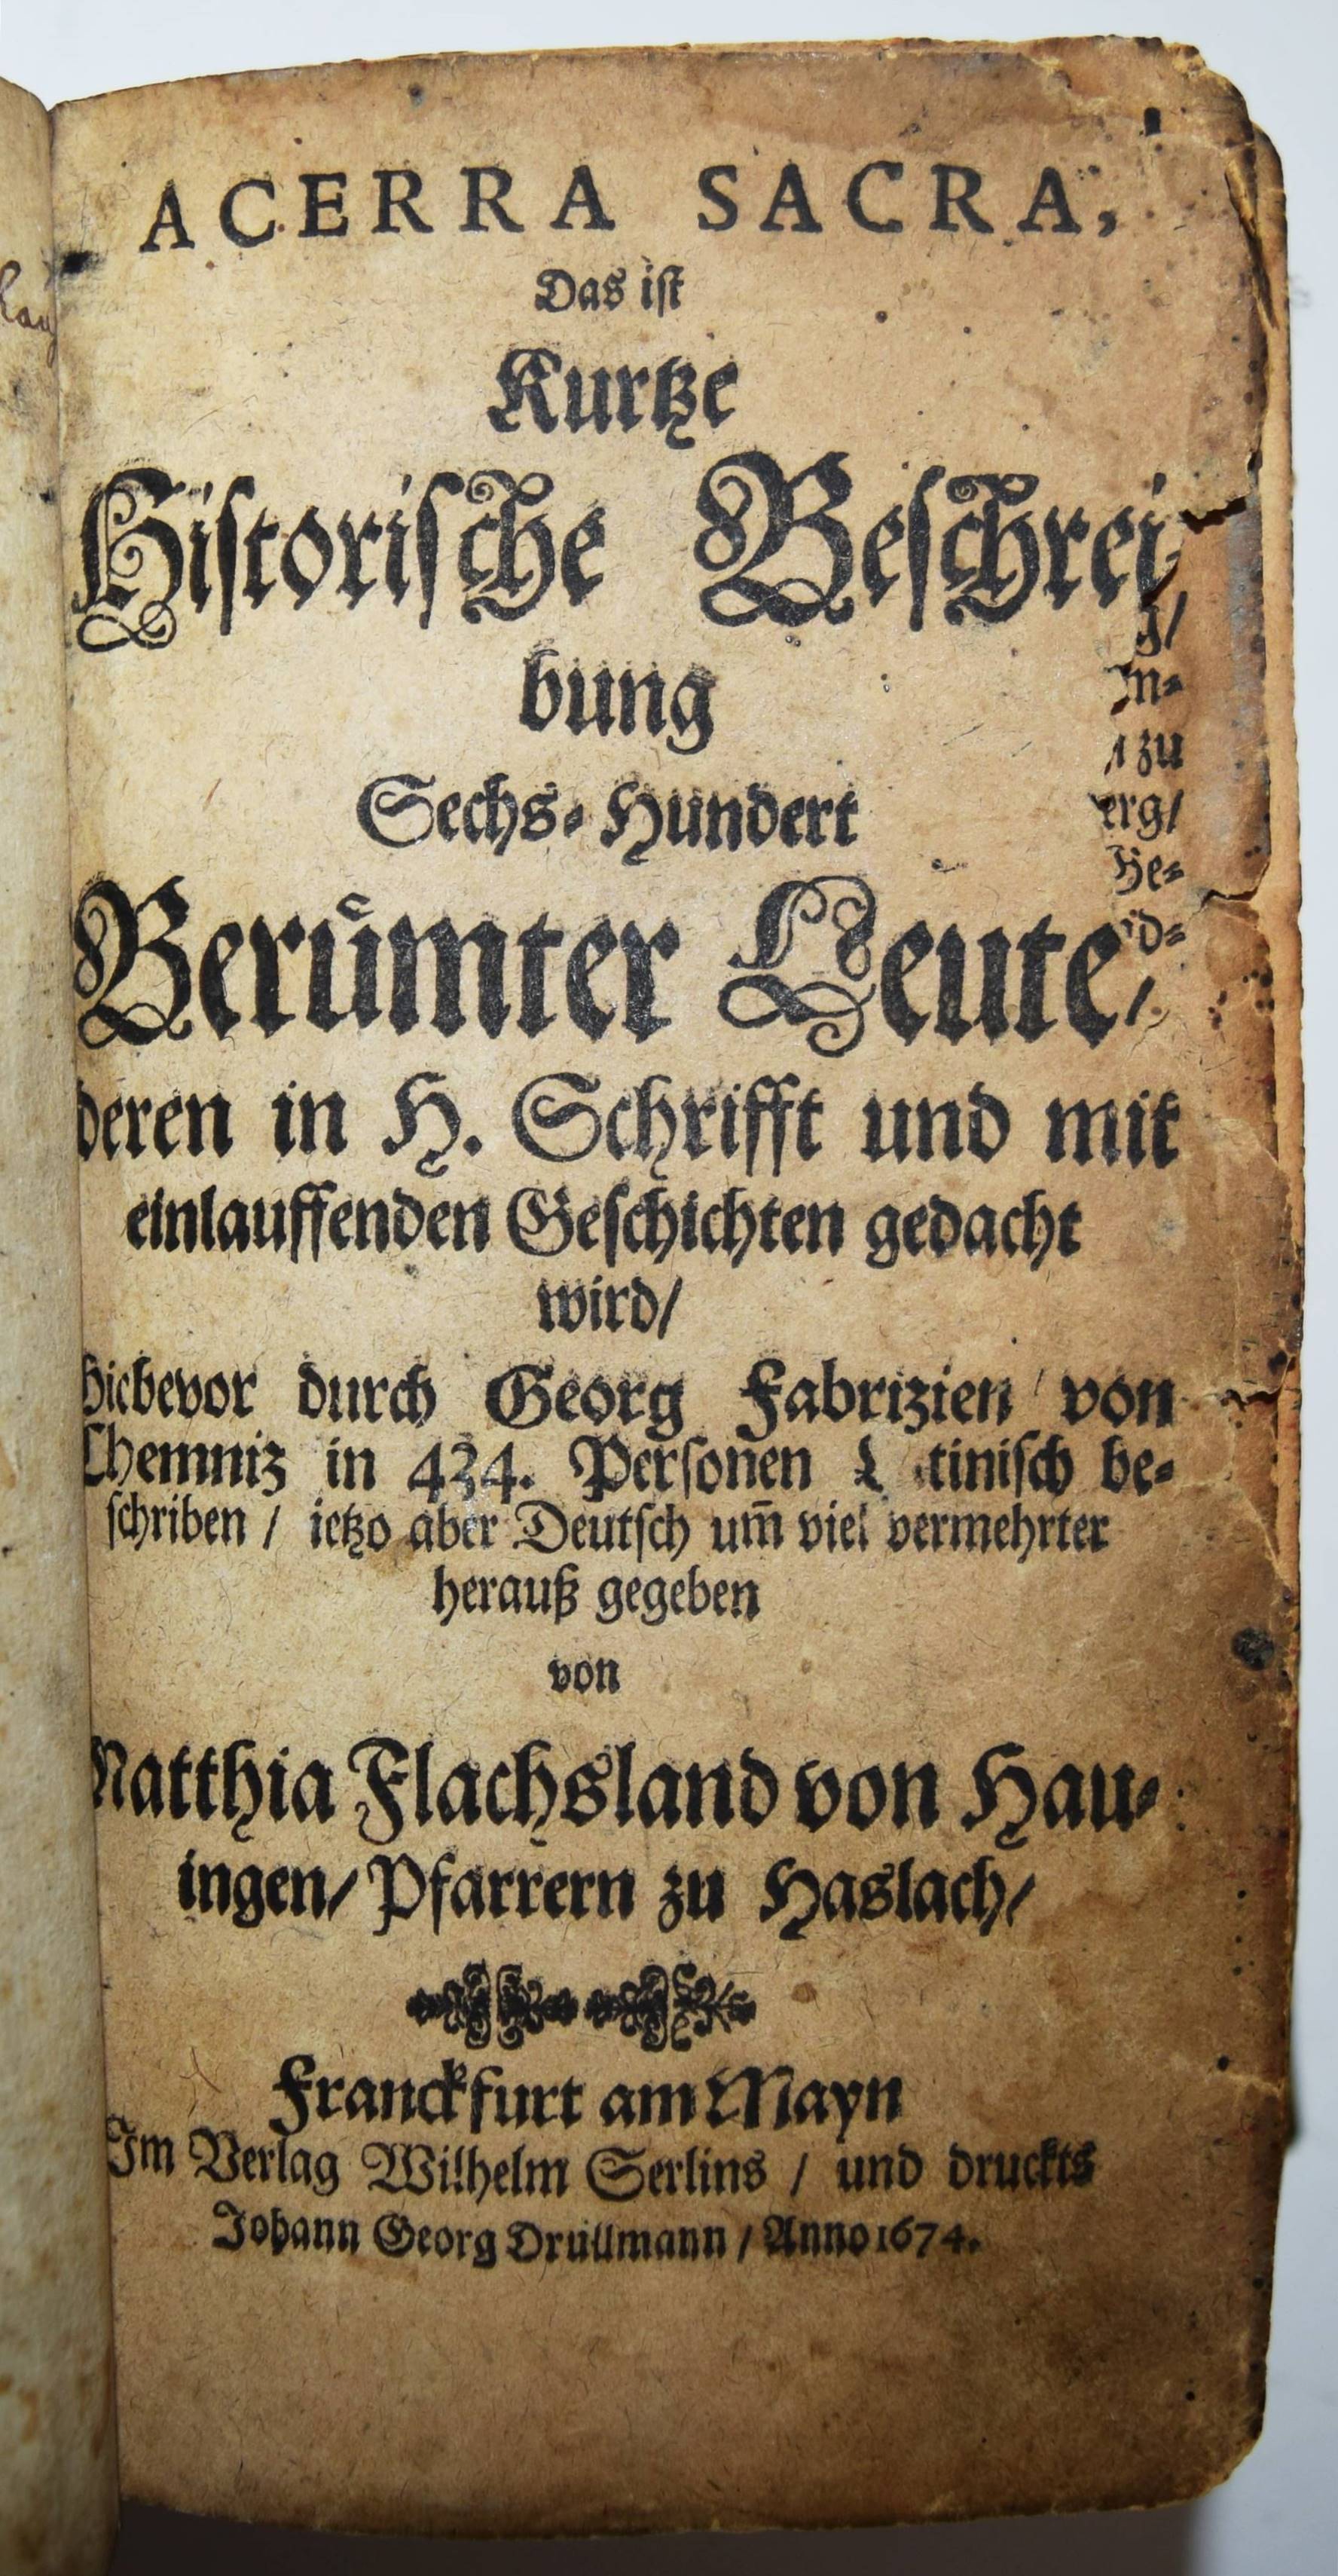 ACERRA SACRA,
Das ist
Kurtze
Historische Beschrei-
bung
Sechs-Hundert
Berůmter Leute/
deren in H. Schrifft und mit
einlauffenden Geschichten gedacht
wird/
Hiebevor durch Georg Fabrizien von
Chemniz in 434. Personen L tinisch be-
schriben / ietzo aber Deutsch um̄ viel vermehrter
herauß gegeben
von
Matthia Flachsland von Hau-
ingen/ Pfarrern zu Haslach/
Franckfurt am Mayn
Im Verlag Wilhelm Serlins / und druckts
Johann Georg Drullmann / Anno 1674.
g/
zu
erg/